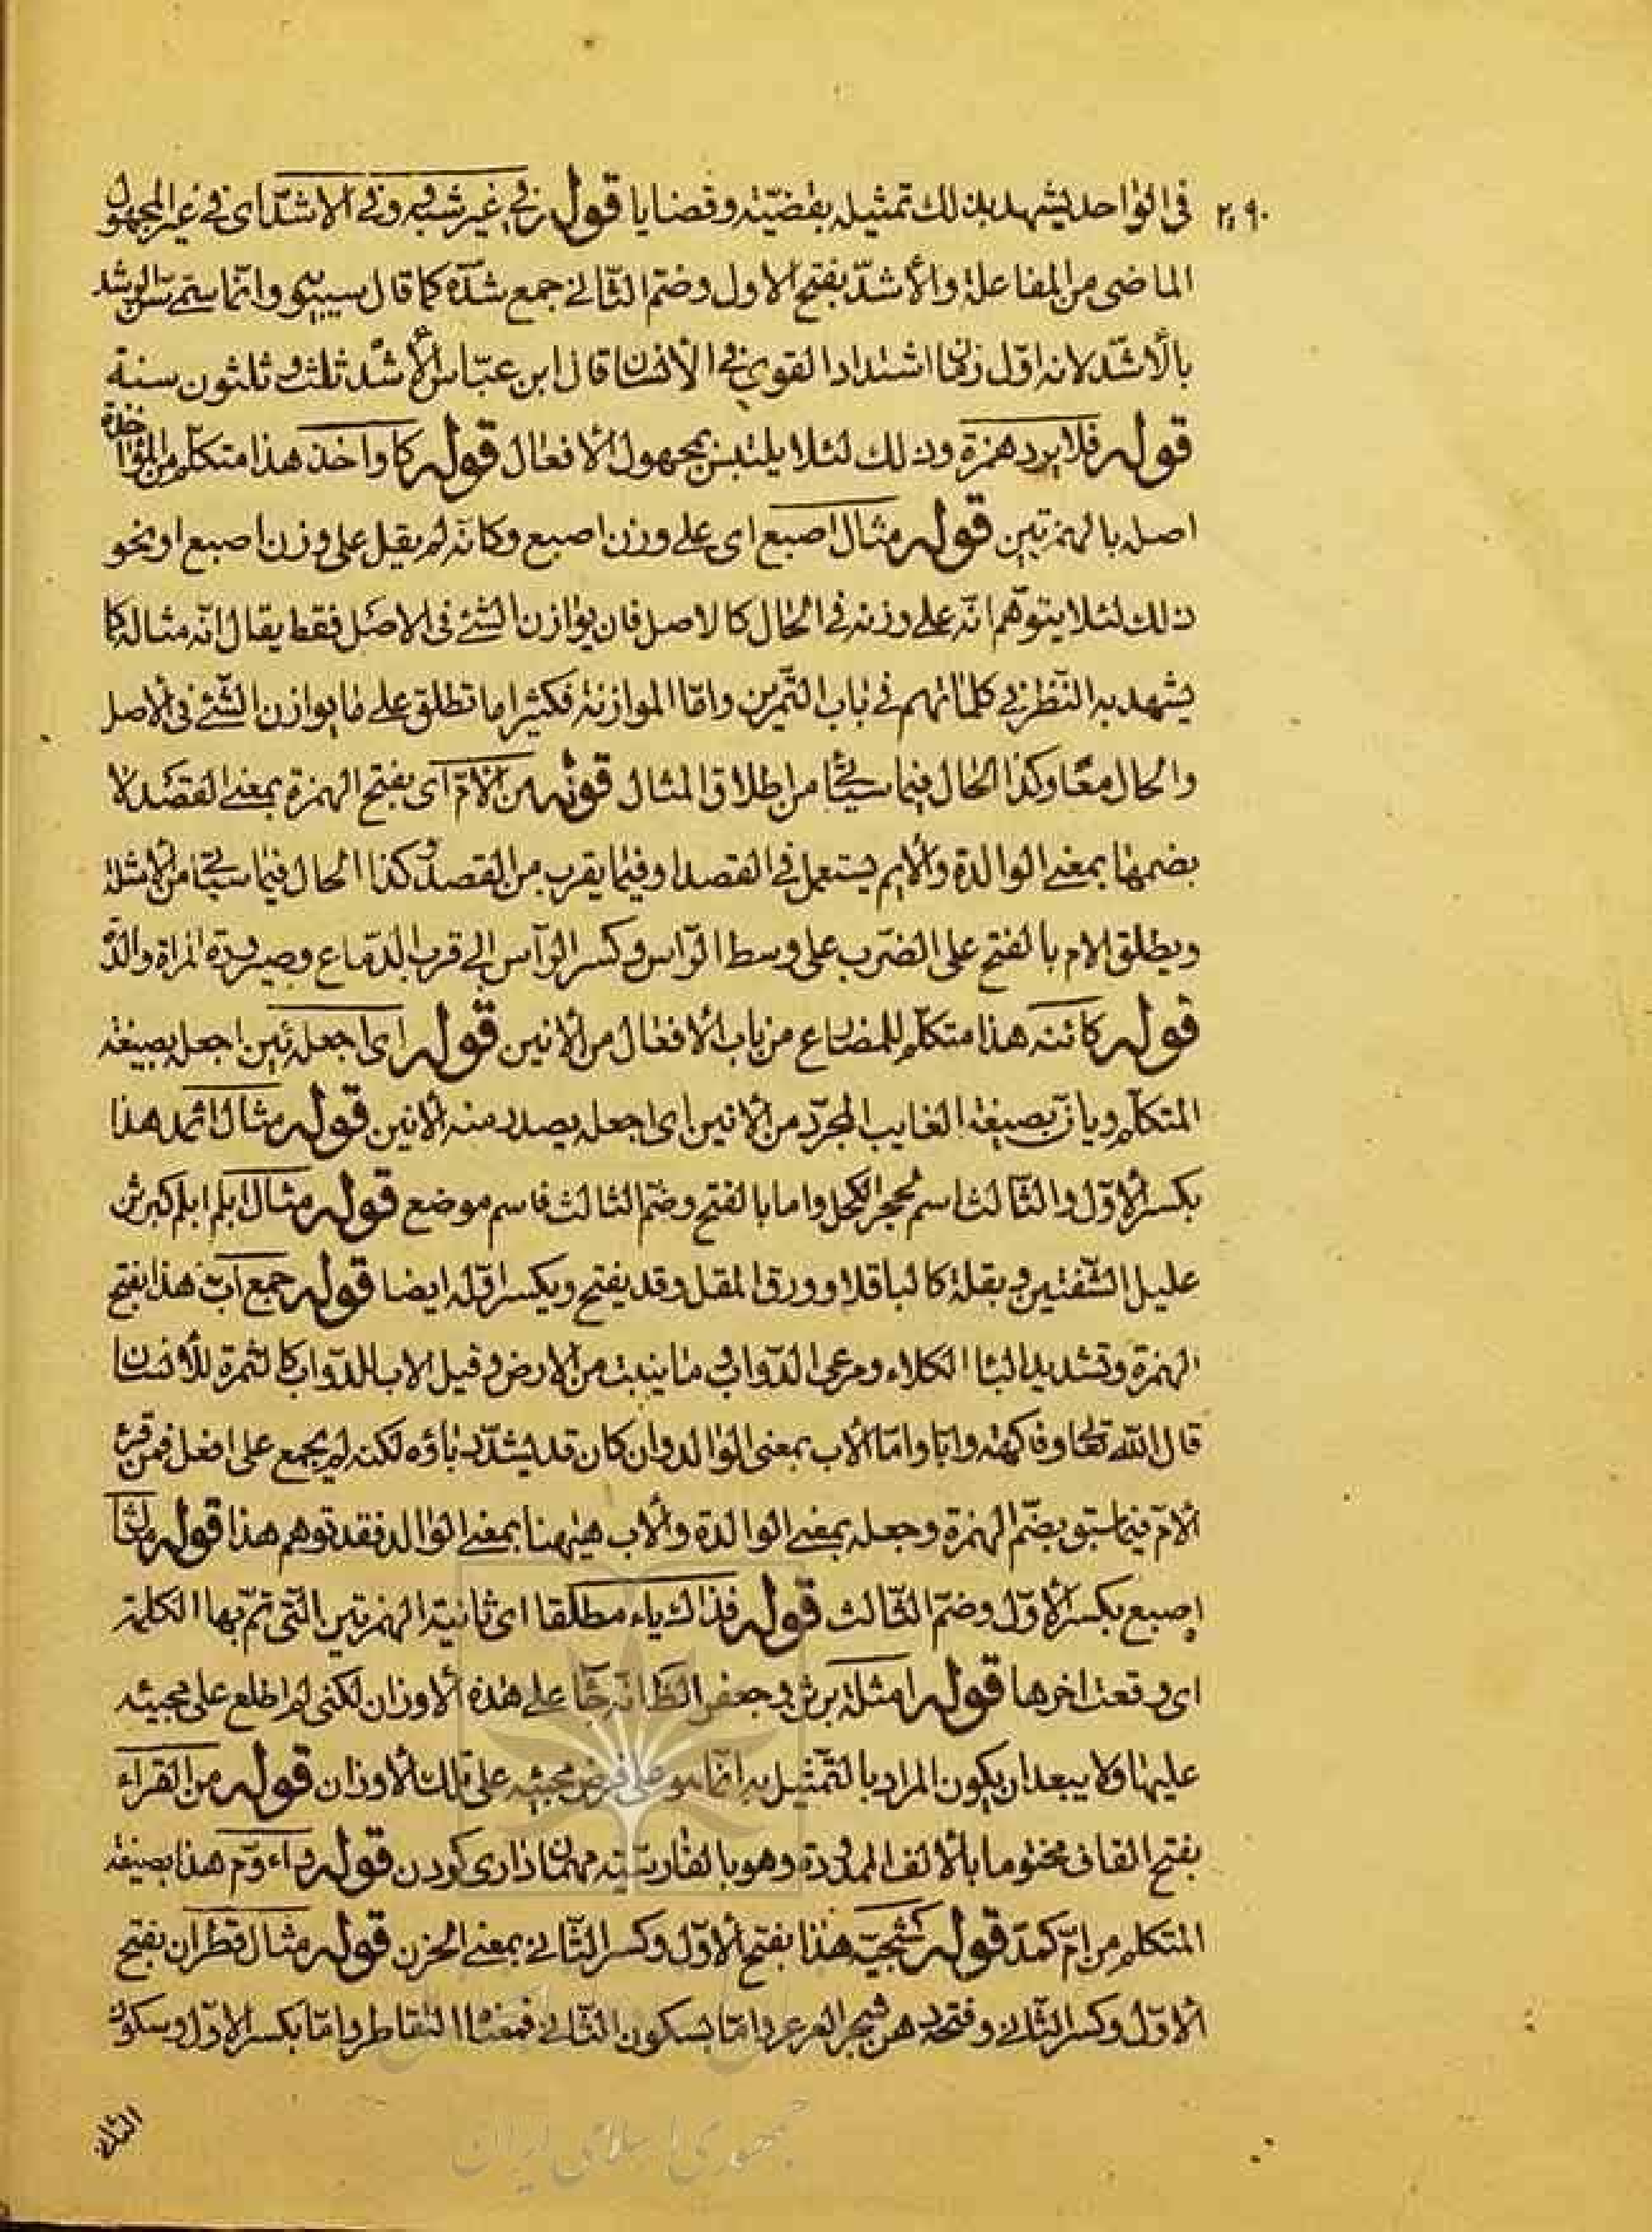 ٢٩٠
فى الواحد يشهد بذلك تمثيله بقضيّة وقضايا قوله فى غير شبه وفى الاشدّ اى فى غير المجهول
الماضى من المفاعلة والأشدّ بفتح الاول وضمّ الثانى جمع شدّة كما قال سيبويه وانّما سمّى سنّ الرشد
بالأشدّ لانه اوّل زمان اشتداد القوى فى الأنسان قال ابن عبّاس الأشدّ ثلث وثلثون سنة
قوله فلا يرد همزة وذلك لئلا يلتبس بمجهول الأفعال قوله كاواخذ هذا متكلّم من المؤاخذة
اصله بالهمزتين قوله مثال اصبع اى على وزن اصبع وكانّه لم يقل على وزن اصبع او نحو
ذلك لئلا يتوهّم انّه على وزنه فى الحال كالاصل فان يوازن الشئ فى الاصل فقط يقال انّه مثاله كما
يشهد به النّظر فى كلماتهم فى باب التّمرين وامّا الموازنة فكثيرا ما تطلق على ما يوازن الشّئ فى الاصل
والحال معًا وكذا الحال فيما سيجئ من اطلاق المثال قوله من الامّ اى بفتح الهمزة بمعنى القصد لا
بضمها بمعنى الوالدة والام يستعمل فى القصد او فيما يقرب من القصد وكذا الحال فيما سيجئ من الامثلة
ويطلق الام بالفتح على الضرب على وسط الرّاس وكسر الرّآس الى قرب الدّماغ وصيرورة المراة والدة
قوله كائنه هذا متكلّم للمضارع من باب الأفعال من الأنين قوله اى اجعله يئين اجعل بصيغة
المتكلّم ويانّ بصيغة الغايب المجرّد من الانين اى اجعله يصدر منه الانين قوله مثال اثمد هذا
بكسر الاوّل والثّالث اسم لحجر الكحل واما بالفتح وضمّ الثالث فاسم موضع قوله مثال ابلم ابلم كبرثن
عليل الشّفتين وبقلة كالباقلا وورق المقل وقد يفتح ويكسر اوّله ايضا قوله جمع ابّ هذا بفتح
الهمزة وتشديد البا الكلاء ومرعى الدّواب وما ينبت من الارض وقيل الاب للدّواب كالثمرة للأنسان
قال الله تعالى وفاكهة وابّا وامّا الأب بمعنى الوالد وان كان قد يشدّد باؤه لكنه لم يجمع على افعل فمن قرئ
الامّ فيما سبق بضمّ الهمزة وجعله بمعنى الوالدة والاب هيهنا بمعنى الوالد فقد توهم هذا قوله مثال
اصبع بكسر الاوّل وضمّ الثّالث قوله فذاك ياء مطلقا اى ثانية الهمزتين الّتى تمّ بها الكلمة
اى وقعت اخرها قوله امثلة برثن وجعفر الظّ انّه جاء على هذه الاوزان لكنى لم اطلع على مجيئه
عليها ولا يبعد ان يكون المراد بالتّمثيل به انّما هو على فرض مجيئه على تلك الأوزان قوله من القراء
بفتح القاف مختوما بالألف الممدودة وهو بالفارسيّة مهمانداری کردن قوله واءوّم هذا بصيغة
المتكلم من امّ كمدّ قوله كشجيّة هذا بفتح الأوّل وكسر الثّانى بمعنى الحزن قوله مثال قطران بفتح
الاوّل وكسر الثّانى وفتحه دهن شجر العرعر وامّا بسكون الثّانى فمعناه التقاطر وامّا بكسر الاوّل وسكون
الثانى
جمهوری اسلامی ایران